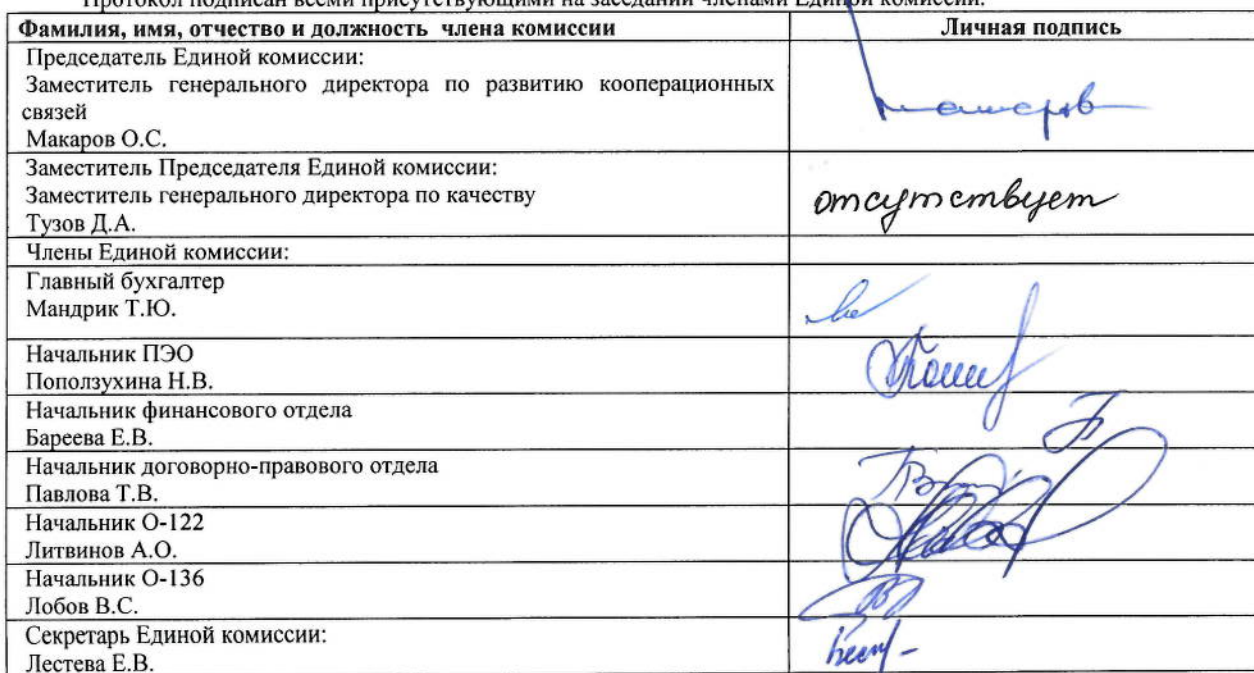 Протокол подписан всеми присутствующими на заседании членами Единой комиссии.
Фамилия, имя, отчество и должность члена комиссии Личная подпись
Председатель Единой комиссии:
Заместитель генерального директора по развитию кооперационных
связей
Макаров О.С.
Заместитель Председателя Единой комиссии:
Заместитель генерального директора по качеству
Тузов Д.А.
отсутствует
Члены Единой комиссии:
Главный бухгалтер
Мандрик Т.Ю.
Начальник ПЭО
Поползухина Н.В.
Начальник финансового отдела
Бареева Е.В.
Начальник договорно-правового отдела
Павлова Т.В.
Начальник О-122
Литвинов А.О.
Начальник О-136
Лобов В.С.
Секретарь Единой комиссии:
Лестева Е.В.